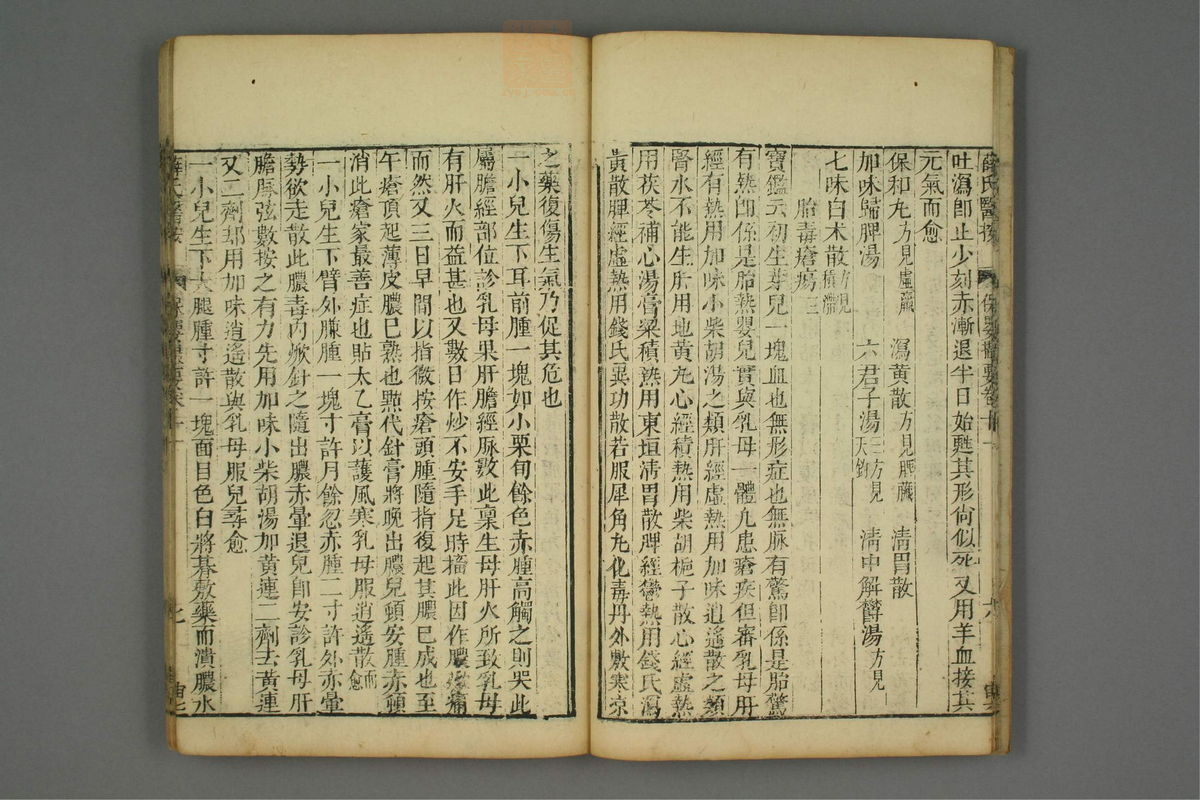 薛氏醫按
保嬰撮要卷十一
吐瀉卽止少刻赤漸退半日始甦其形尙似死又用羊血接其
元氣而愈
保和丸方見虛羸 瀉黃散方見脾臟 淸胃散
加味歸脾湯 六君子湯二方見天釣 淸中解鬱湯方見
七味白朮散方見積滯
胎毒瘡瘍三
寶鑑云初生芽兒一塊血也無形症也無脉有驚卽係是胎驚
有熱卽係是胎熱嬰兒實與乳母一體凡患瘡疾但審乳母肝
經有熱用加味小柴胡湯之類肝經虛熱用加味逍遙散之類
腎水不能生肝用地黃丸心經積熱用柴胡梔子散心經虛熱
用茯苓補心湯膏粱積熱用東垣淸胃散脾經鬱熱用錢氏瀉
黃散脾經虛熱用錢氏異功散若服犀角丸化毒丹外敷寒凉
之藥復傷生氣乃促其危也
一小兒生下耳前腫一塊如小栗旬餘色赤腫高觸之則哭此
屬膽經部位診乳母果肝膽經脉數此禀生母肝火所致乳母
有肝火而益甚也又數日作炒不安手足時搐此因作膿痛
而然又三日早間以指微按瘡頭腫隨指復起其膿已成也至
午瘡頂起薄皮膿已熟也㸃代針膏將晚出膿兒頓安腫赤頓
消此瘡家最善症也貼太乙膏以護風寒乳母服逍遙散而愈
一小兒生下臂外臁腫一塊寸許月餘忽赤腫二寸許外赤暈
勢欲走散此膿毒内焮針之隨出膿赤暈退兒卽安診乳母肝
膽脉弦數按之有力先用加味小柴胡湯加黃連二劑去黃連
又二劑却用加味逍遙散與乳母服兒尋愈
一小兒生下大腿腫寸許一塊面目色白將朞敷藥而潰膿水
薛氏醫按
保嬰撮要卷十一
七